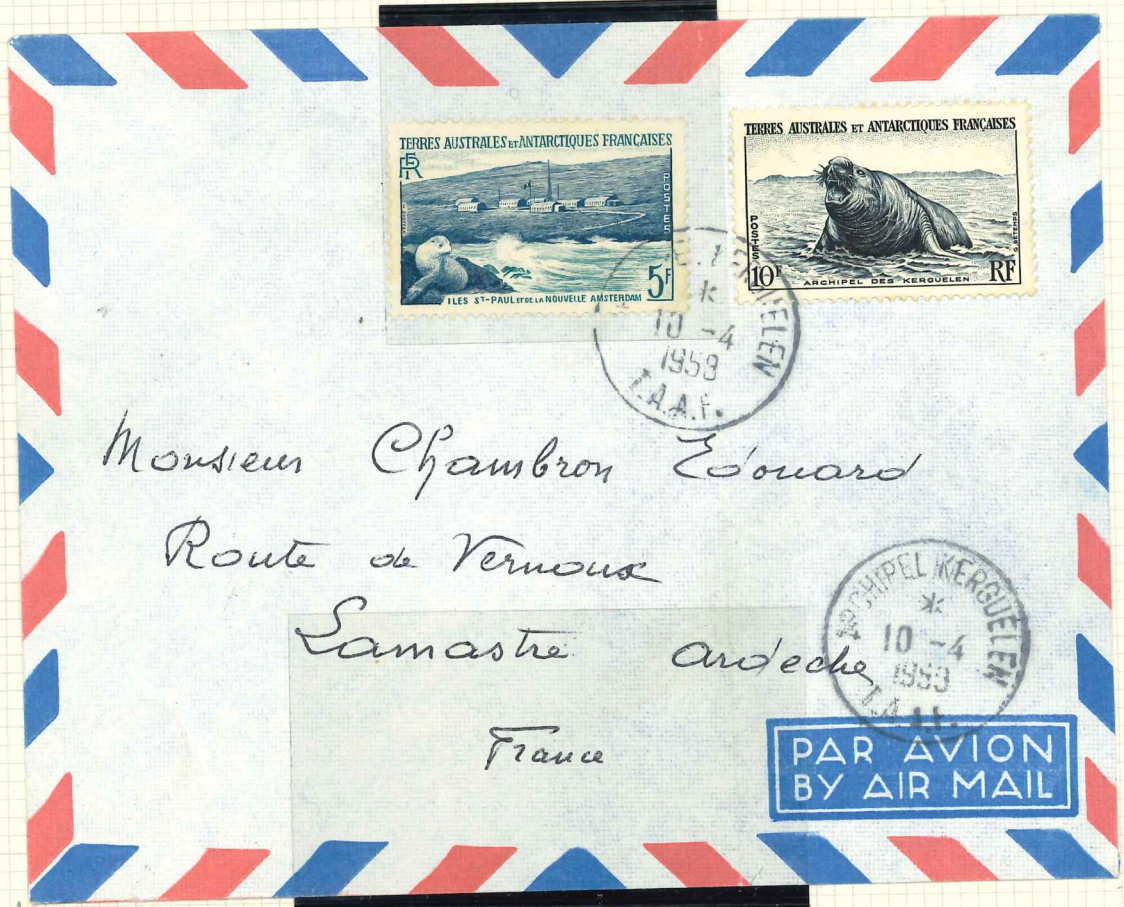 TERRES AUSTRALES ET ANTARCTIQUES FRANÇAISES
RF
POSTES
5F
ILES ST-PAUL ET DE LA NOUVELLE AMSTERDAM
TERRES AUSTRALES ET ANTARCTIQUES FRANÇAISES
POSTES
10F
ARCHIPEL DES KERGUELEN
RF
KERGUELEN
*
10 -4
T.A.A.F.
Monsieur Chambron Edouard
Route de Vernoux
Lamastre ardeche
France
ARCHIPEL KERGUELEN
*
10 -4
T.A.A.F.
PAR AVION
BY AIR MAIL